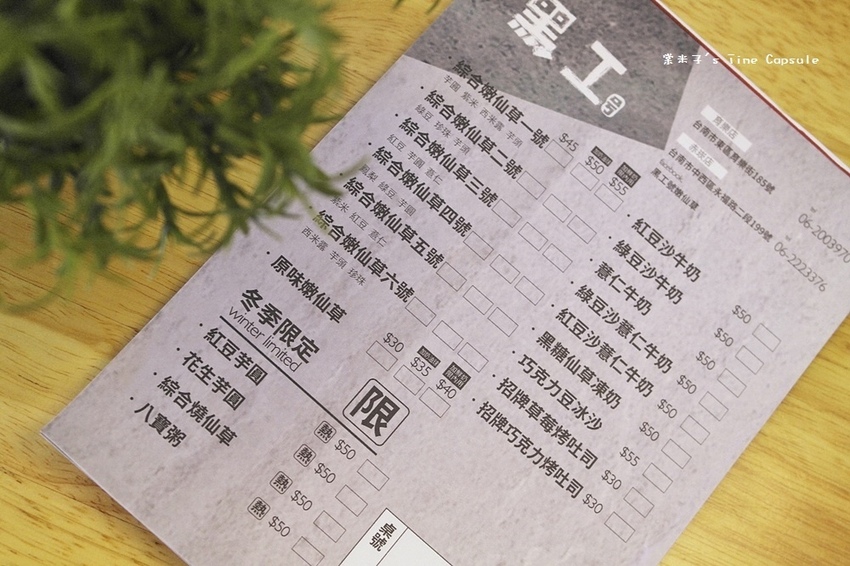 棠米子's Time Capsule
黑工号
育樂店
台南市東區育樂街185號
06-2003970
赤崁店
台南市中西區永福路二段199號
06-2223376
facebook
黑工號嫩仙草
$45 $50 $55
・綜合嫩仙草一號
芋圓 紫米 西米露 芋頭
・綜合嫩仙草二號
綠豆 珍珠 芋頭
・綜合嫩仙草三號
紅豆 芋圓 薏仁
・綜合嫩仙草四號
鳳梨 綠豆 芋圓
・綜合嫩仙草五號
紫米 紅豆 薏仁
・綜合嫩仙草六號
西米露 芋頭 珍珠
・原味嫩仙草
$30 $35 $40
冬季限定
winter limited
限
・紅豆芋圓 熱 $50
・花生芋圓 熱 $50
・綜合燒仙草 熱 $50
・八寶粥 熱 $50
・紅豆沙牛奶 $50
・綠豆沙牛奶 $50
・薏仁牛奶 $50
・綠豆沙薏仁牛奶 $50
・紅豆沙薏仁牛奶 $50
・黑糖仙草凍奶 $50
・巧克力豆冰沙 $55
・招牌草莓烤吐司 $30
・招牌巧克力烤吐司 $30
桌號